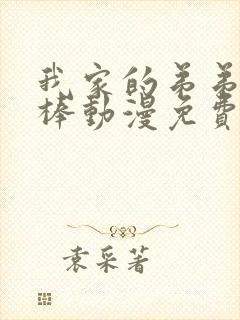 我家的弟弟
棒動漫免費
袁采著